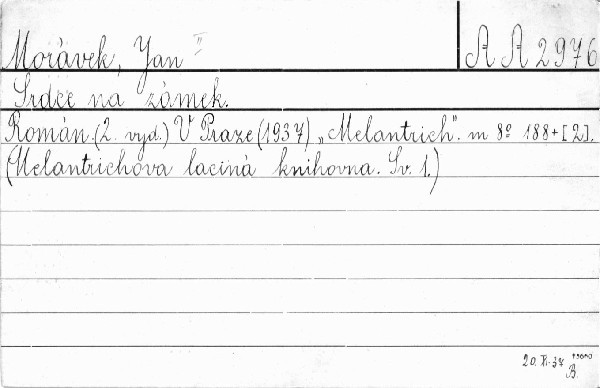 Morávek, Jan II
AA 2976
Srdce na zámek.
Román. (2. vyd.) V Praze (1937) „Melantrich". m 8º 188+[2].
(Melantrichova laciná knihovna. Sv. 1.)
20. XI. 37
B.